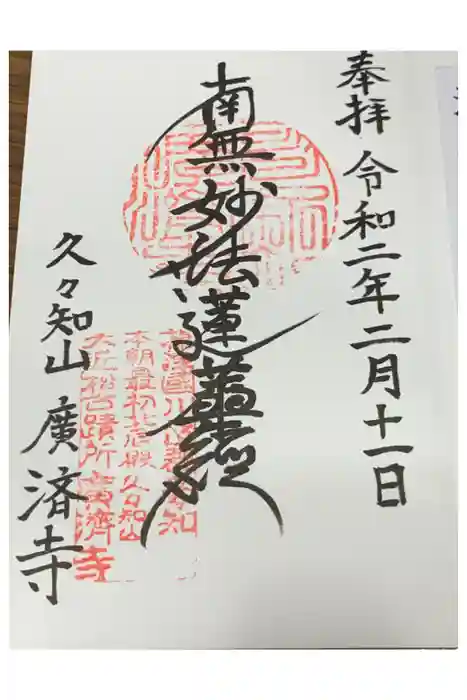 奉拝 令和二年二月十一日
南無妙法蓮華経
久々知山 廣済寺
本朝最初
久々知山
廣濟寺